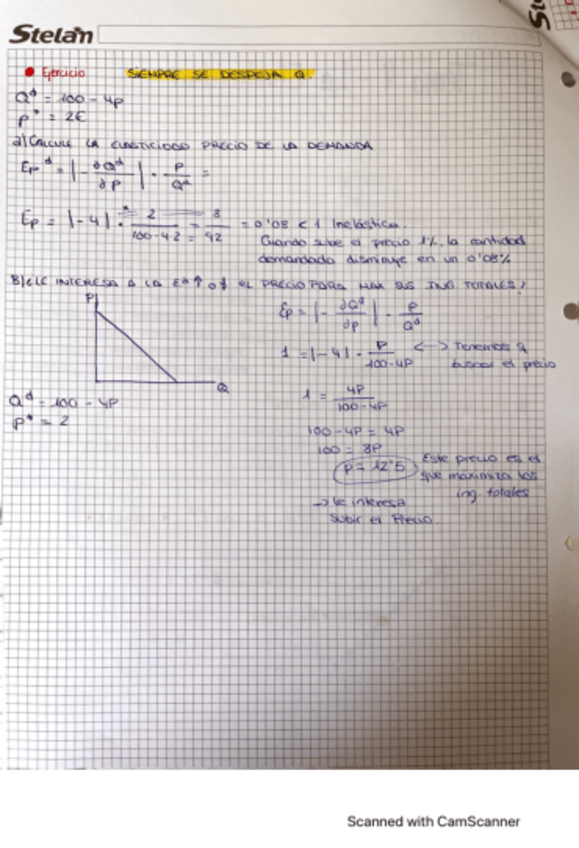 Stelan
Ejercicio SIEMPRE SE DESPEJA Q.
Q^d = 100 - 4P
P* = 2€
a) CALCULE LA ELASTICIDAD PRECIO DE LA DEMANDA
Ep^d = |- ∂Q^d/∂P| · P/Q^d =
Ep = |-4| · 2/100-4·2 = 8/92 = 0'08 < 1 Inelástica.
Cuando sube el precio 1%, la cantidad
demandada disminuye en un 0'08%
B) ¿LE INTERESA A LA Eª ↑ o ↓ EL PRECIO PARA MAX SUS ING TOTALES?
P
Q
Q^d = 100 - 4P
P* = 2
Ep = |- ∂Q^d/∂P| · P/Q^d
1 = |-4| · P/100-4P <--> Tenemos q
buscar el precio
1 = 4P/100-4P
100-4P = 4P
100 = 8P
P = 12'5 Este precio es el
que maximiza los
ing. totales
-> le interesa
subir el Precio.
Scanned with CamScanner